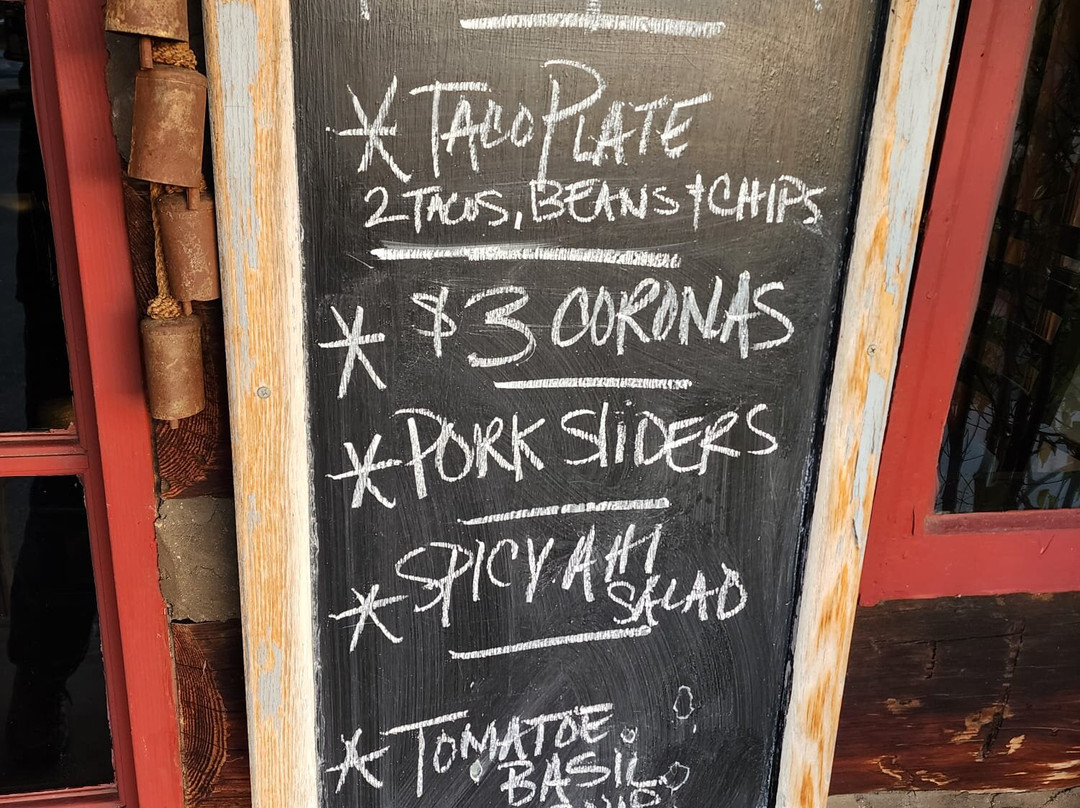 * TACO PLATE
2 TACOS, BEANS + CHIPS
* $3 CORONAS
* PORK SLIDERS
* SPICY AHI
SALAD
* TOMATOE
BASIL